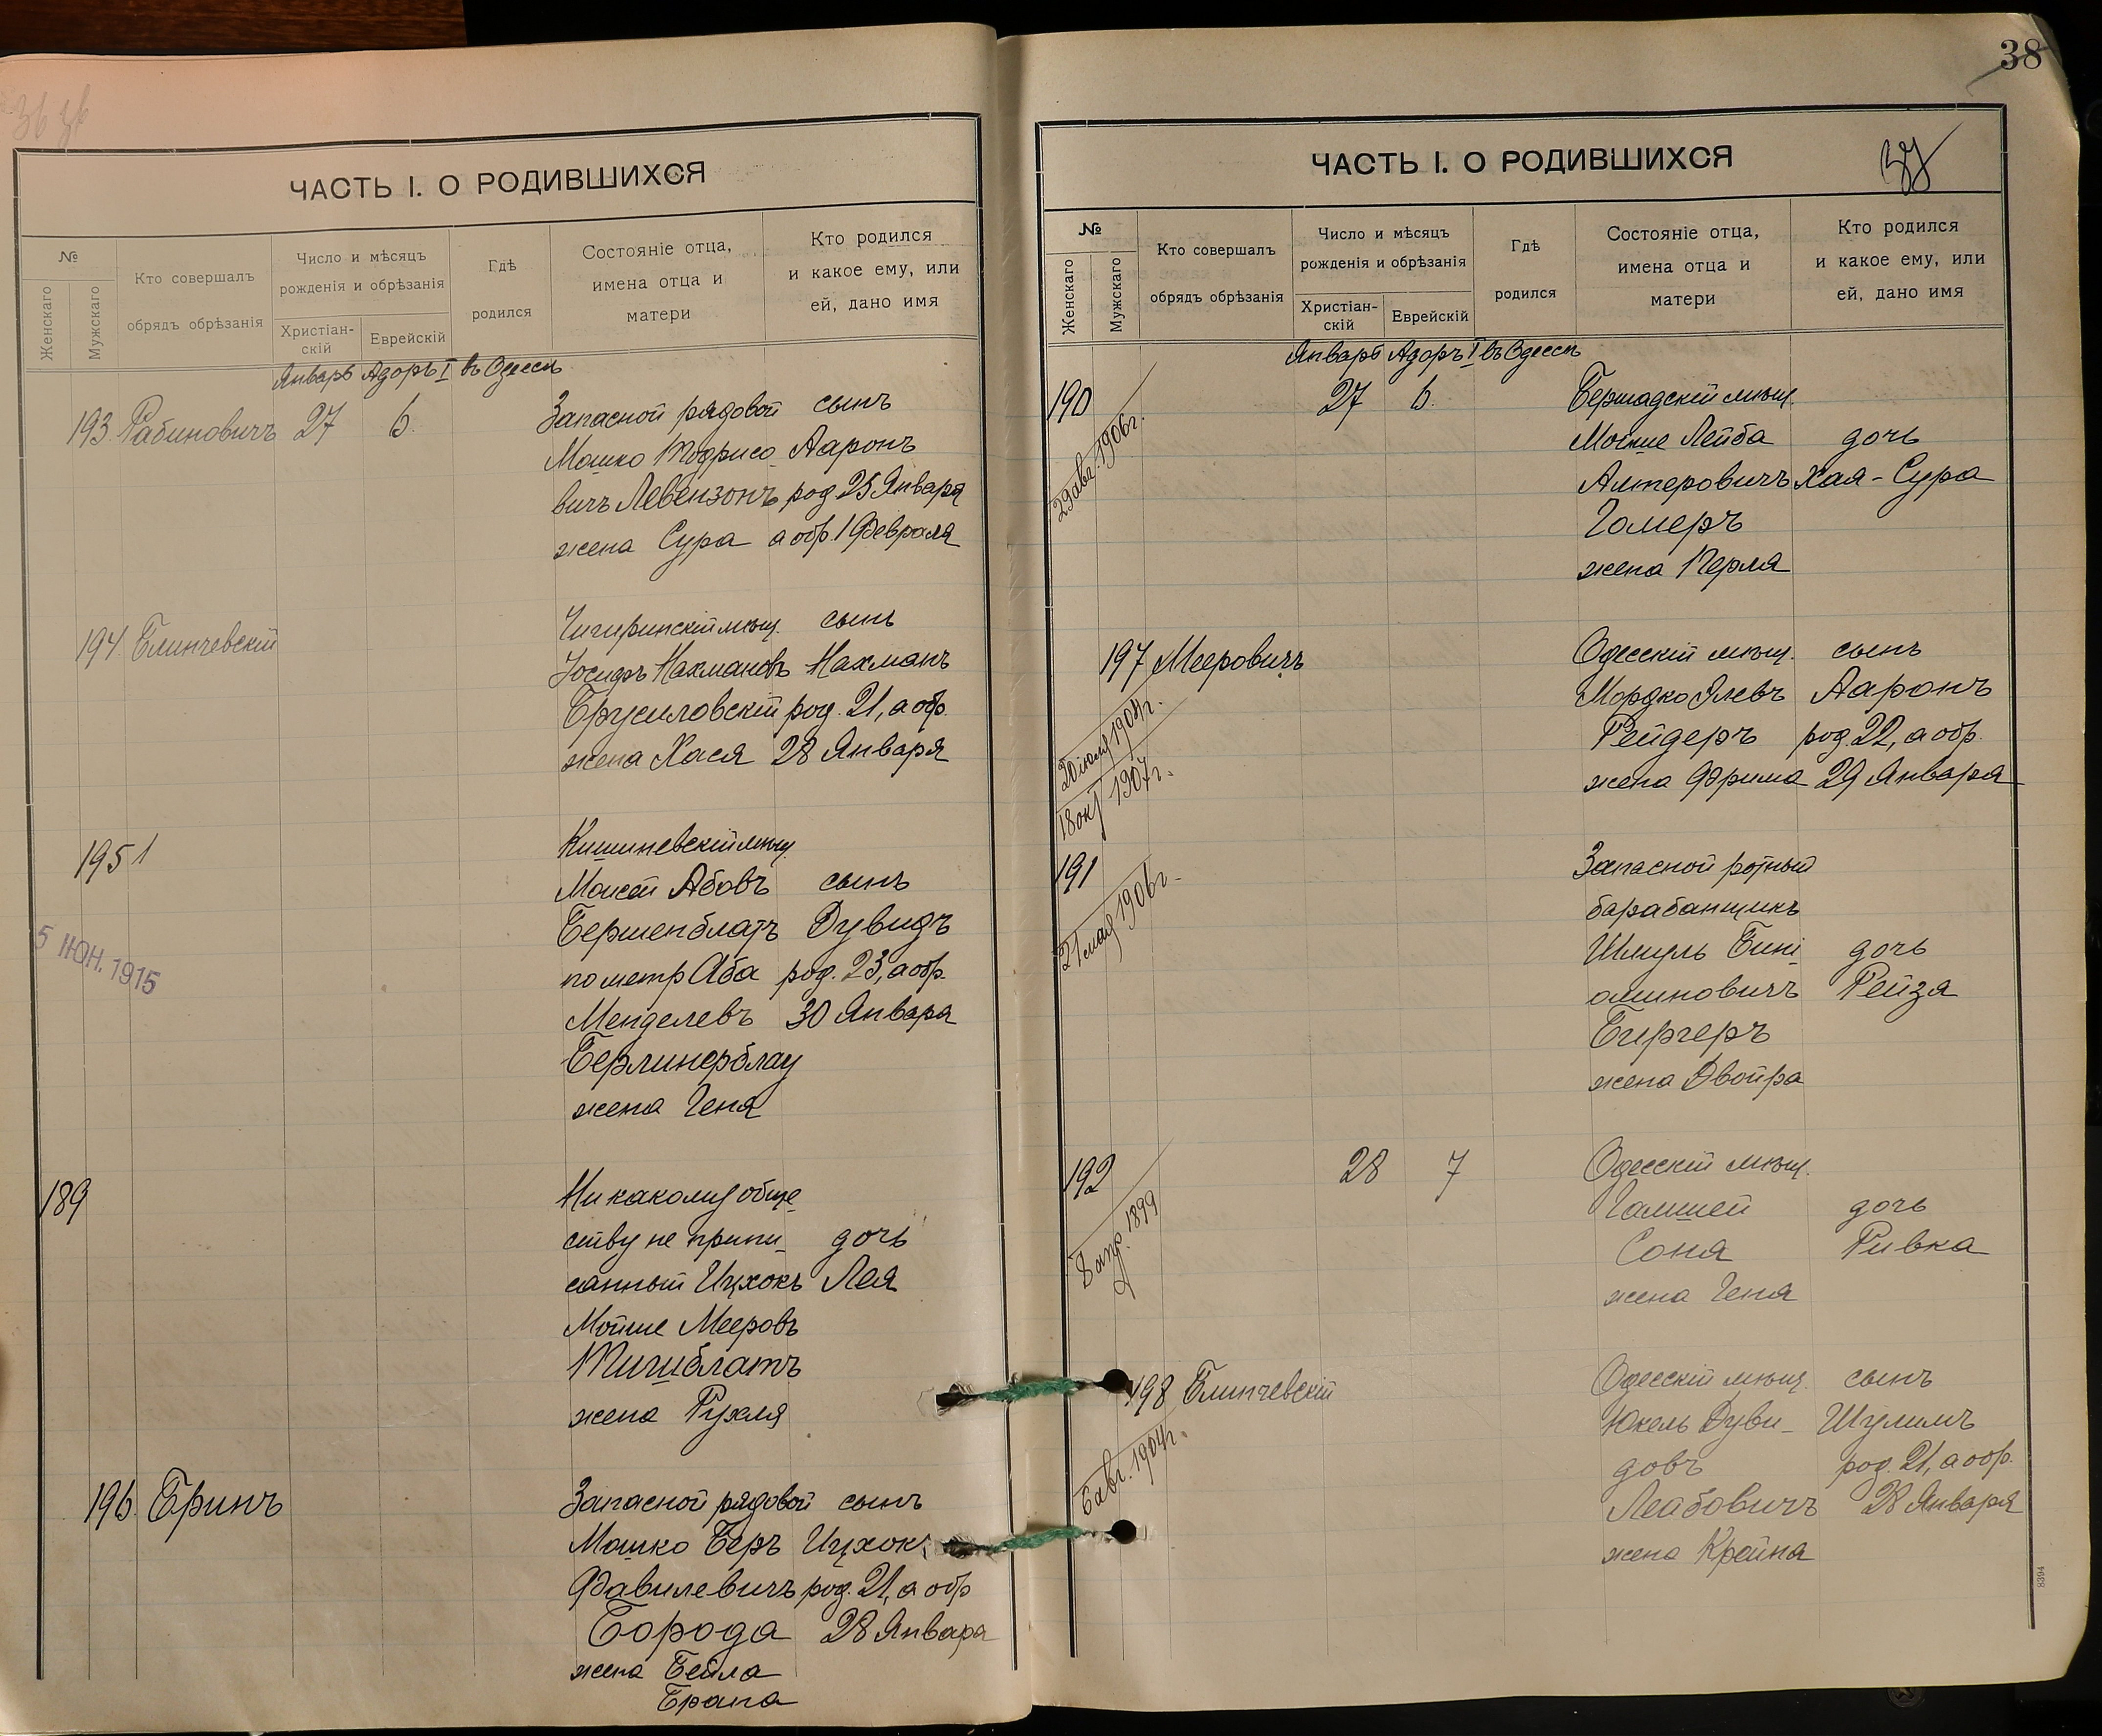 38
ЧАСТЬ I. О РОДИВШИХСЯ
№
Женскаго
Мужскаго
Кто совершалъ
обрядъ обрѣзанія
Число и мѣсяцъ
рожденія и обрѣзанія
Христіан-
скій
Еврейскій
Гдѣ
родился
Состояніе отца,
имена отца и
матери
Кто родился
и какое ему, или
ей, дано имя
Январь Адоръ I въ Одессѣ
193. Рабиновичъ 27 6. Запасной рядовой сынъ
Мошко Тодрисо_ Ааронъ
вичъ Левензонъ род 25 Января
жена Сура а обр. 1 Февраля
194. Блинчевскій Чигиринскій мѣщ. сынъ
Іосифъ Нахмановъ Нахманъ
Брусиловскій род. 21, а обр.
жена Хася 28 Января
195 1 Кишиневскій мѣщ.
Моисей Абовъ сынъ
Бершенблатъ Дувидъ
по метр Аба род. 23, а обр.
Менделевъ 30 Января
Берлинерблау
жена Геня
5 ІЮН. 1915
189 Ни какому обще_
ству не припи_ дочь
санный Ицхокъ Лея
Мойше Мееровъ
Тигиблатъ
жена Рухля
196. Бринъ Запасной рядовой сынъ
Мошко Беръ Ицхокъ
Фавилевичъ род. 21, а обр
Борода 28 Января
жена Бейла
Брана
ЧАСТЬ I. О РОДИВШИХСЯ
№
Женскаго
Мужскаго
Кто совершалъ
обрядъ обрѣзанія
Число и мѣсяцъ
рожденія и обрѣзанія
Христіан-
скій
Еврейскій
Гдѣ
родился
Состояніе отца,
имена отца и
матери
Кто родился
и какое ему, или
ей, дано имя
Январь Адоръ I въ Одессѣ
190 27 6. Бершадскій мѣщ.
Мойше Лейба дочь
Алтеровичъ Хая-Сура
Гомеръ
жена Перля
29 авг. 1906г.
197 Мееровичъ Одесскій мѣщ. сынъ
Мордко Элевъ Ааронъ
Рейдеръ род. 22, а обр.
жена Фрима 29 Января
20 іюля 1904г.
18 окт 1907г.
191 Запасной ротный
барабанщикъ
Шмуль Бині_ дочь
оминовичъ Рейза
Бургеръ
жена Двойра
21 мая 1906г.
192 28 7 Одесскій мѣщ.
Гамшей дочь
Соня Ривка
жена Геня
8 апр. 1899
198 Блинчевскій Одесскій мѣщ. сынъ
Юкель Дуви_ Шулимъ
довъ род. 21, а обр.
Лейбовичъ 28 Января
жена Крейна
6 авг. 1904г.
8394